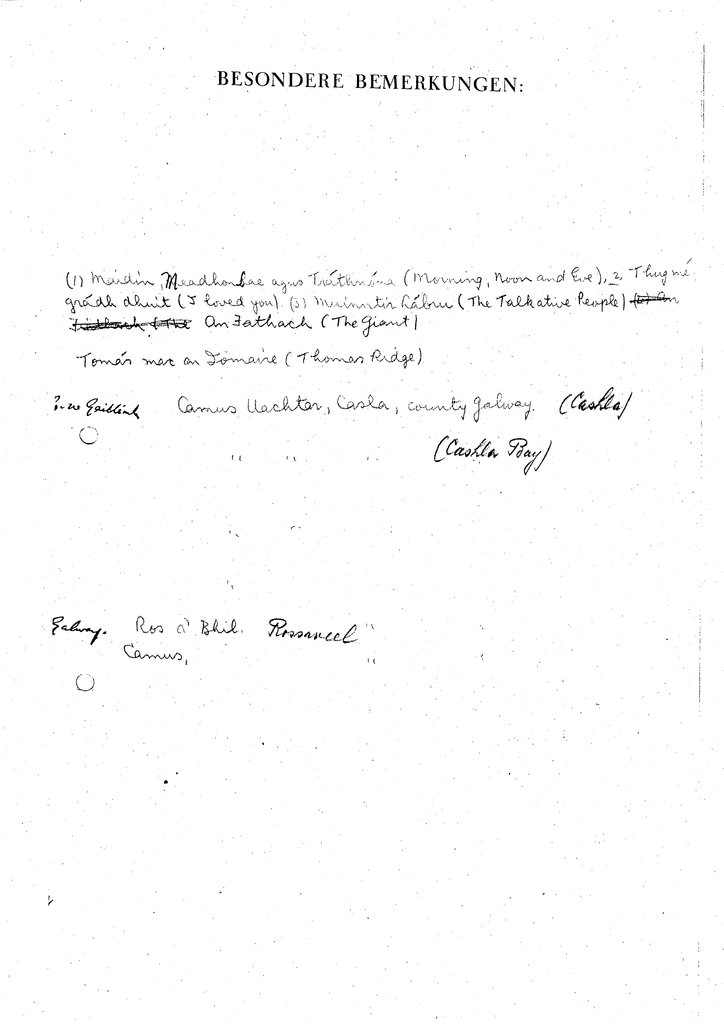 BESONDERE BEMERKUNGEN:
(1) Maidin, Meadhon Lae agus Tráthnóna (Morning, Noon and Eve), 2. Thug mé
grádh dhuit (I loved you). (3) Muinntir Labru (The Talkative People) (3) An
An Fathach (The Giant)
Tomás mac an Iomaire (Thomas Ridge)
Camus Uachtar, Casla, county Galway. (Cashla)
" " " (Cashla Bay)
Galway. Ros a' Bhil. Rossaveel "
Camus, "